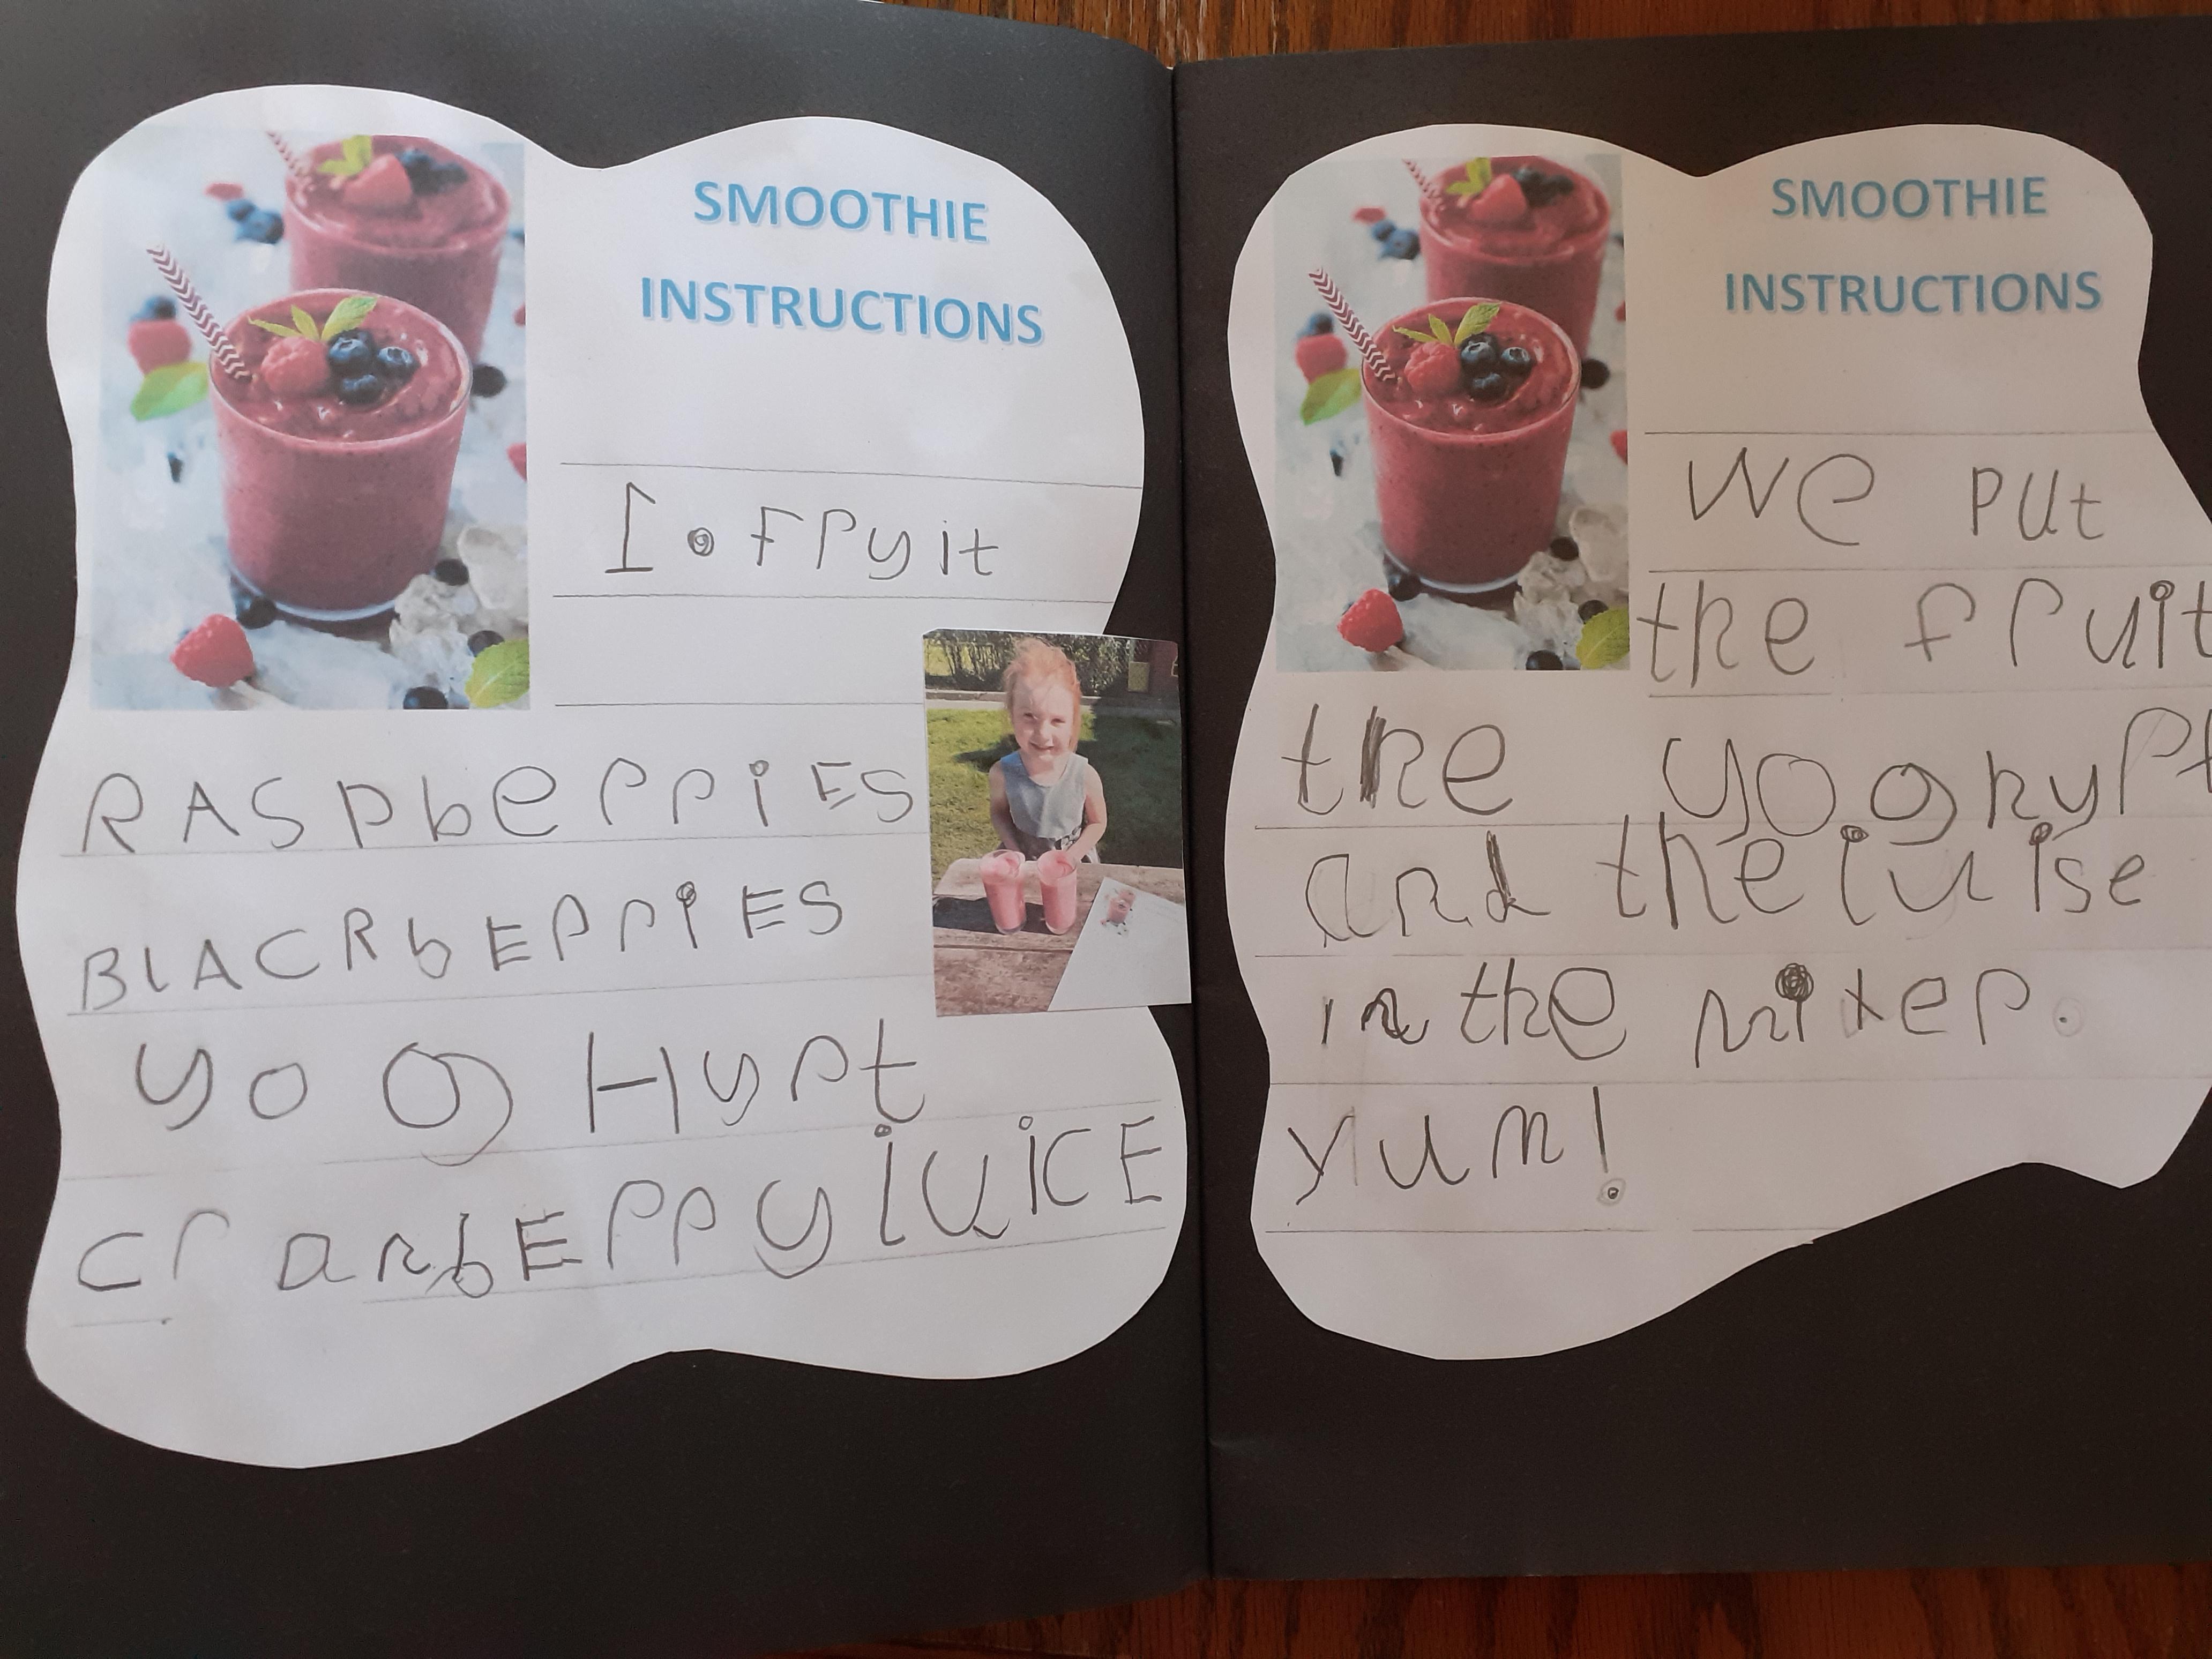 SMOOTHIE
INSTRUCTIONS
1. Fruit
RASpberriES
BlACKbErriES
yogHurt
cranbErry juiCE
SMOOTHIE
INSTRUCTIONS
We put
the fruit
the yoghurt
and the juise
in the mixer.
yum!